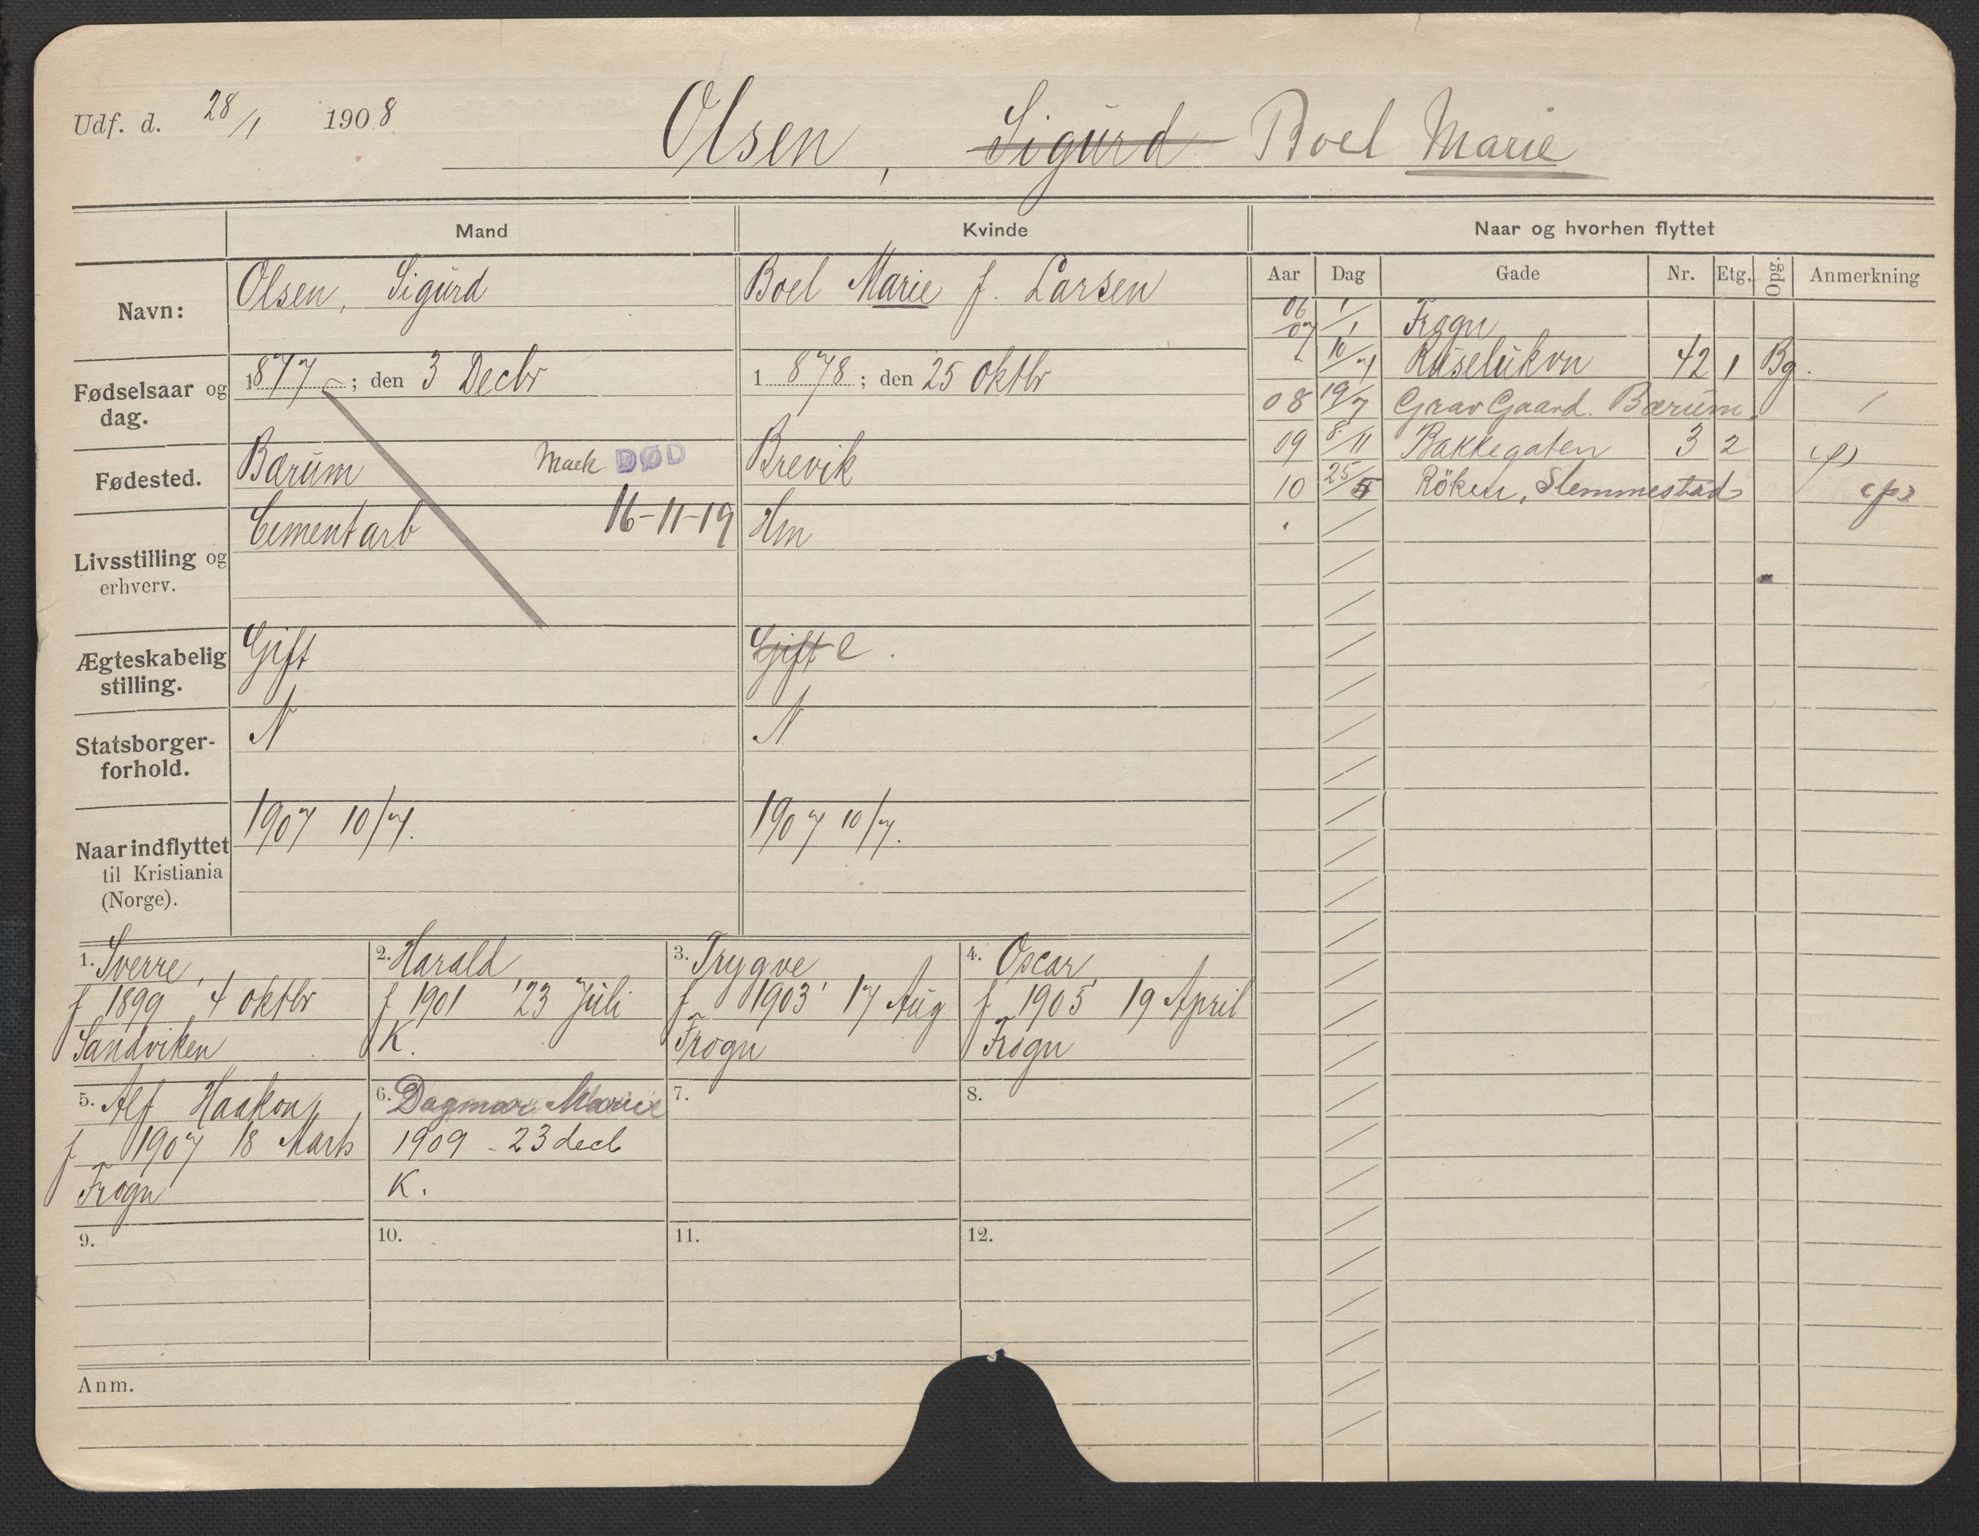 Udf. d. 28/1 1908
Olsen, Sigurd Boel Marie
Mand
Kvinde
Naar og hvorhen flyttet
Navn:
Olsen, Sigurd
Boel Marie f. Larsen
Fødselsaar og dag.
1877; den 3 Decbr
1878; den 25 Oktbr
Fødested.
Bærum
DØD
16-11-19
Brevik
Livsstilling og
erhverv.
Cementarb
Hm
Ægteskabelig
stilling.
Gift
Gift e.
Statsborger-
forhold.
N
N
Naar indflyttet
til Kristiania
(Norge).
1907 10/7.
1907 10/7.
Aar Dag Gade Nr. Etg. Opg. Anmerkning
06/07 1/1 Frogn
10/7 Ruselukvn 42 1 Bg.
08 19/7 Grav Gaard. Bærum. 1
09 8/11 Bakkegaten 3 2
10 25/5 Röken, Slemmestad
1. Sverre,
f 1899 4 oktbr
Sandviken
2. Harald
f 1901 23 Juli
K.
3. Trygve
f 1903 17 Aug
Frogn
4. Oscar
f 1905 19 April
Frogn
5. Alf Haakon,
f 1907 18 Marts
Frogn
6. Dagmar Marie
1909 - 23 decb
K.
7.
8.
9.
10.
11.
12.
Anm.